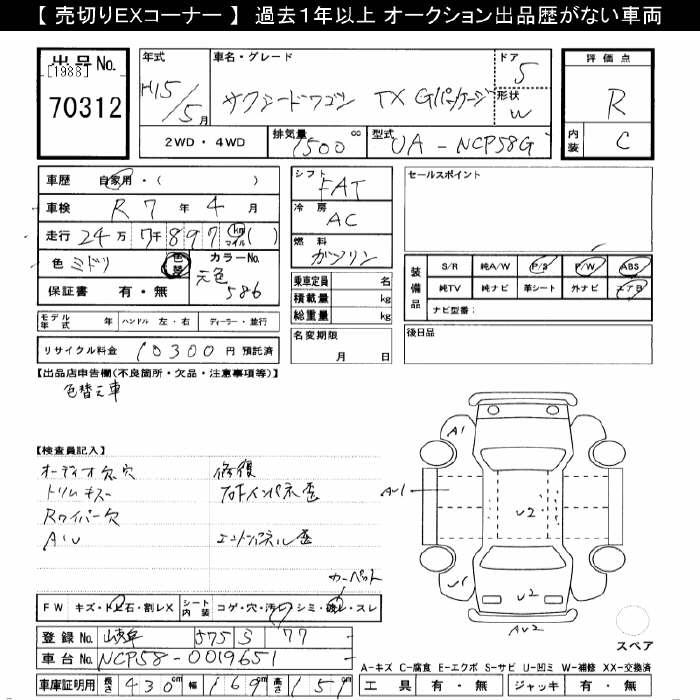 【 売切りEXコーナー 】 過去１年以上 オークション出品歴がない車両
出品No.
[1988]
70312
年式
H15/5月
車名・グレード
サクシードワゴン TX Gパッケージ
ドア
5
形状
W
評価点
R
内装
C
2WD・4WD
排気量
1500 cc
型式
UA-NCP58G
車歴 自家用・( )
車検 R7年4月
走行 24万7千897 km マイル ( )
色 ミドリ 色替
カラーNo.
元色 586
保証書 有・無
モデル年式 年 ハンドル 左・右 ディーラー・並行
リサイクル料金 10300 円 預託済
シフト
FAT
冷房
AC
燃料
ガソリン
乗車定員 名
積載量 kg
総重量 kg
名変期限
月 日
セールスポイント
装備品
S/R 純A/W P/S P/W ABS
純TV 純ナビ 革シート 外ナビ エアB
ナビ型番：
後日品
【出品店申告欄(不良箇所・欠品・注意事項等)】
色替え車
【検査員記入】
オーディオ欠穴
トリムキズ
Rワイパー欠
A1U
修復
フロトインパネ歪
エンドパネル歪
カーペット
FW キズ・トビ石・割レX
シート内装 コゲ・穴・汚レ・シミ・破レ・スレ
登録No. 575 S 77
車台No. NCP58-0019651
車庫証明用 長さ 430cm 幅 169cm 高さ 151cm
A1
AU1
U2
U1
U2
AU2
スペア
A-キズ C-腐食 E-エクボ S-サビ U-凹ミ W-補修 XX-交換済
工具 有・無 ジャッキ 有・無